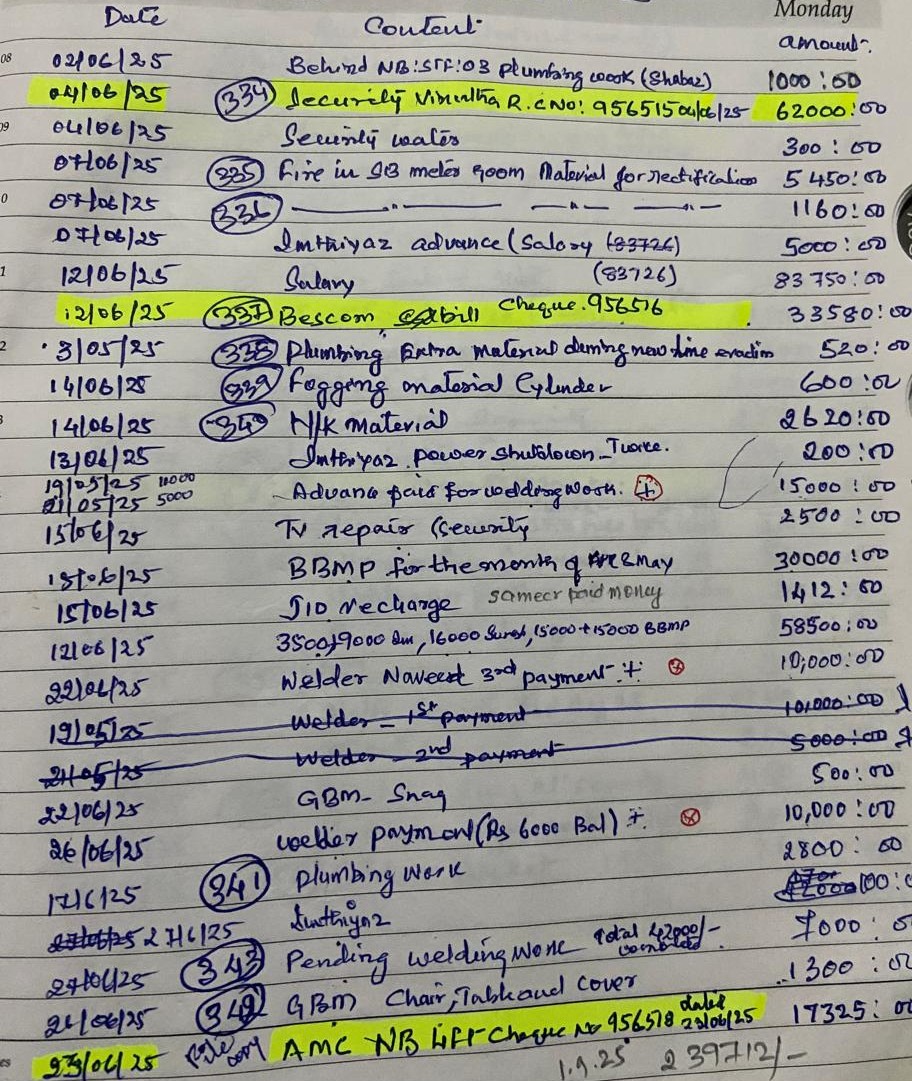 Monday
Date Content amount
08 02/06/25 Behind NB:STF:03 Plumbing wook (Shabaz) 1000:00
04/06/25 334 Security Vimultha R.C No: 956515 04/06/25 62000:00
09 04/06/25 Security water 300:00
07/06/25 335 Fire in SB meter room Material for rectification 5450:00
0 07/06/25 336 —"— —"— —"— 1160:00
07/06/25 Imthiyaz advance (Salary (83726) 5000:00
1 12/06/25 Salary (83726) 83750:00
12/06/25 337 Bescom bill Cheque.956516 33580:00
2 3/05/25 338 Plumbing Extra material duming new line 520:00
14/06/25 339 Fogging material Cylinder 600:00
3 14/06/25 340 H/K Material 2620:00
13/06/25 Imthiyaz power shutdown - Twice. 200:00
19/05/25 10000
21/05/25 5000 Advance paid for welding work. + 15000:00
15/06/25 TV repair (Security 2500:00
15/06/25 BBMP for the month of May 30000:00
15/06/25 JIO recharge sameer paid money 1412:00
12/06/25 3500, 9000 Im, 16000 Suresh, 15000+15000 BBMP 58500:00
22/06/25 Welder Naveed 3rd payment + 10,000:00
19/05/25 Welder - 1st payment 10,000:00
21/05/25 Welder - 2nd payment 5000:00
22/06/25 GBM - Snag 500:00
26/06/25 Welder payment (Rs 6000 Bal) + 10,000:00
17/6/25 341 Plumbing Work 2800:00
27/6/25 Imthiyaz 00:0
27/06/25 343 Pending welding Work Total 42000/- 7000:0
26/06/25 342 GBM Chair, Table and cover 1300:00
23/06/25 AMC NB Lift Cheque No 956518 dated 23/06/25 17325:00
1.9.25 239712/-